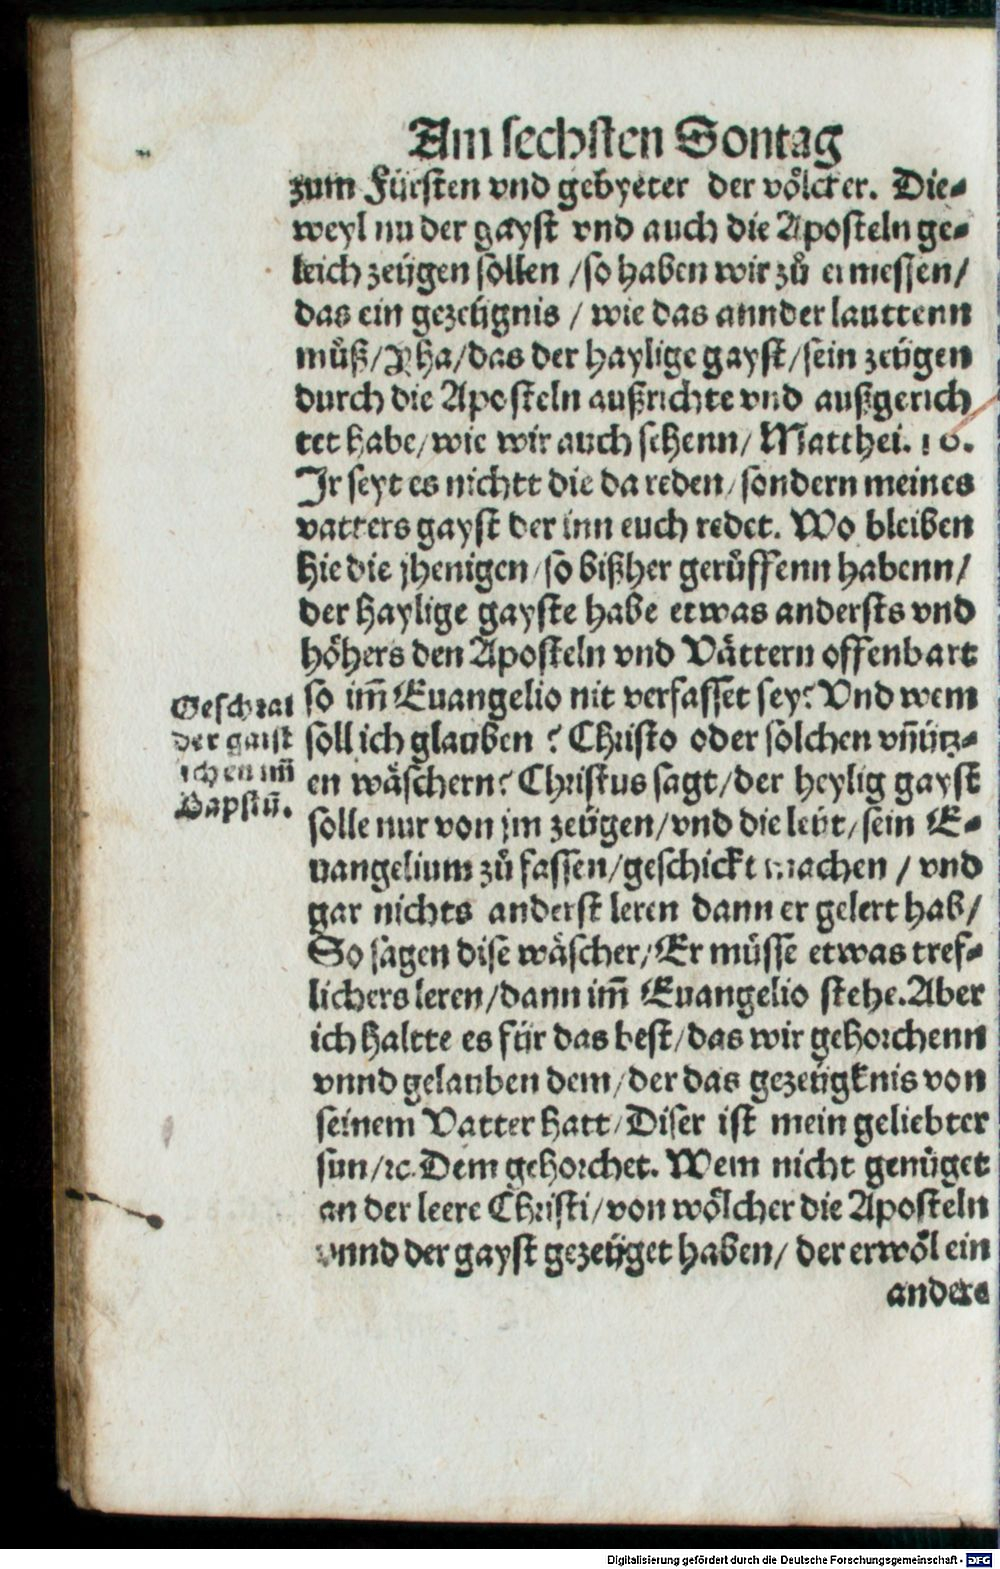 Am sechsten Sontag
zum Fürsten vnd gebyeter der völcker. Die-
weyl nu der gayst vnd auch die Aposteln ge-
leich zeügen sollen / so haben wir zů ermessen /
das ein gezeügnis / wie das annder lauttenn
můß / Jha / das der haylige gayst / sein zeügen
durch die Aposteln außrichte vnd außgerich
tet habe / wie wir auch sehenn / Matthei. 10.
Ir seyt es nichtt die da reden / sondern meines
vatters gayst der inn euch redet. Wo bleiben
hie die jhenigen / so bißher gerüffenn habenn /
der haylige gayste habe etwas andersts vnd
höhers den Aposteln vnd Vättern offenbart
so im̃ Euangelio nit verfasset sey? Vnd wem
Geschrai
der gaist
ichen im̃
Bapstū.
soll ich glauben? Christo oder solchen vn̄ütz-
en wäschern? Christus sagt / der heylig gayst
solle nur von jm zeügen / vnd die leüt / sein E-
uangelium zů fassen / geschickt machen / vnd
gar nichts anderst leren dann er gelert hab /
So sagen dise wäscher / Er müsse etwas tref-
lichers leren / dann im̃ Euangelio stehe. Aber
ich haltte es für das best / das wir gehorchenn
vnnd gelauben dem / der das gezeügknis von
seinem Vatter hatt / Diser ist mein geliebter
sun / ꝛc. Dem gehorchet. Wem nicht genüget
an der leere Christi / von wölcher die Aposteln
vnnd der gayst gezeüget haben / der erwöl ein
andere
Digitalisierung gefördert durch die Deutsche Forschungsgemeinschaft - DFG